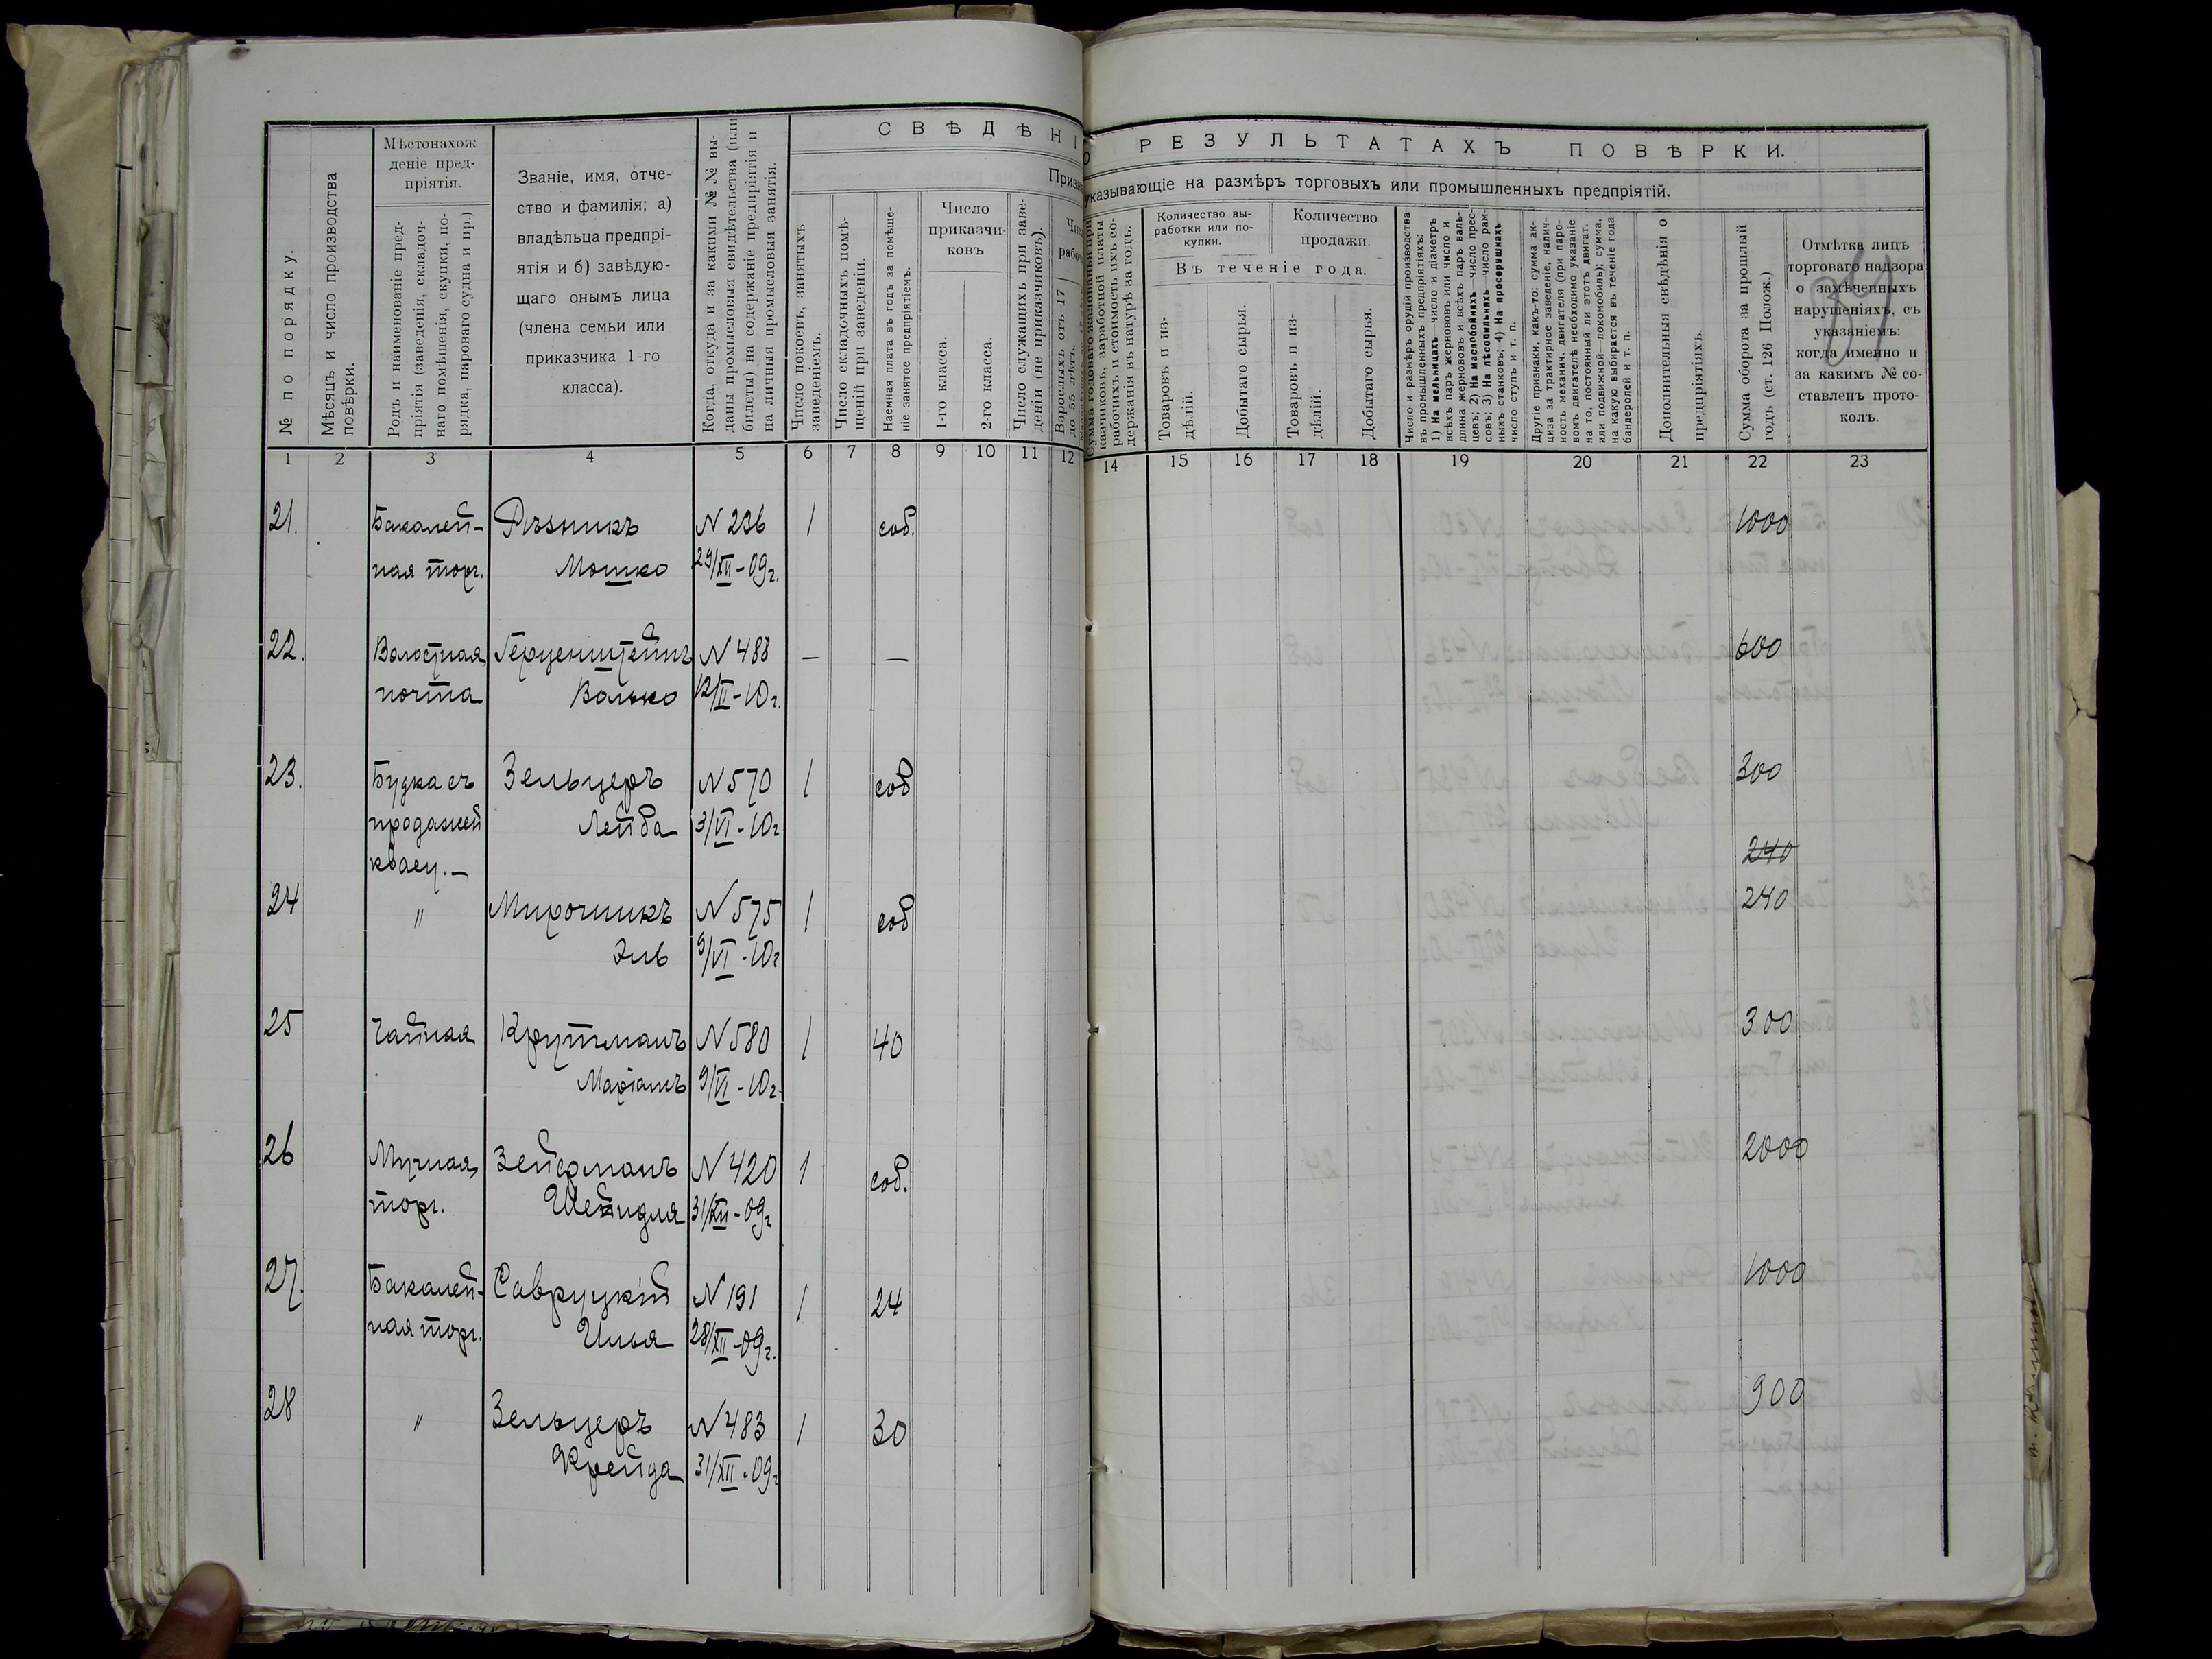 СВѢДѢНІ
О РЕЗУЛЬТАТАХЪ ПОВѢРКИ.
Призн
указывающіе на размѣръ торговыхъ или промышленныхъ предпріятій.
№ по порядку.
Мѣсяцъ и число производства
повѣрки.
Мѣстонахож
деніе пред-
пріятія.
Родъ и наименованіе пред-
пріятія (заведенія, складоч-
наго помѣщенія, скупки, по-
рядка, парового судна и пр.)
Званіе, имя, отче-
ство и фамилія; а)
владѣльца предпрі-
ятія и б) завѣдую-
щаго онымъ лица
(члена семьи или
приказчика 1-го
класса).
Когда, откуда и за какими №№ вы-
даны промысловыя свидѣтельства (или
билеты) на содержаніе предпріятія и
на личныя промысловыя занятія.
Число покоевъ, занятыхъ
заведеніемъ.
Число складочныхъ помѣ-
щеній при заведеніи.
Наемная плата въ годъ за помѣще-
ніе занятое предпріятіемъ.
Число
приказчи-
ковъ
1-го класса.
2-го класса.
Число служащихъ при заве-
деніи (не приказчиковъ).
Чис
рабоч
Взрослыхъ отъ 17
до 55 лѣтъ.
Сумма годоваго жалованья при-
казчиковъ, заработной платы
рабочихъ и стоимость ихъ со-
держанія въ натурѣ за годъ.
Количество вы-
работки или по-
купки.
Количество
продажи.
Въ теченіе года.
Товаровъ и из-
дѣлій.
Добытаго сырья.
Товаровъ и из-
дѣлій.
Добытаго сырья.
Число и размѣръ орудій производства
въ промышленныхъ предпріятіяхъ:
1) На мельницахъ число и діаметръ
всѣхъ паръ жернововъ или число и
длина жернововъ и всѣхъ паръ валь-
цевъ; 2) На маслобойняхъ число прес-
совъ; 3) На лѣсопильняхъ число рам-
ныхъ станковъ; 4) На просорушкахъ
число ступъ и т. п.
Другіе признаки, какъ-то: сумма ак-
циза за трактирное заведеніе, налич-
ность механич. двигателя (при паро-
вомъ двигателѣ необходимо указаніе
на то, постоянный ли этотъ двигат.
или подвижной—локомобиль); сумма,
на какую выбирается въ теченіе года
бандеролей и т. п.
Дополнительныя свѣдѣнія о
предпріятіяхъ.
Сумма оборота за прошлый
годъ (ст. 126 Полож.)
Отмѣтка лицъ
торговаго надзора
о замѣченныхъ
нарушеніяхъ, съ
указаніемъ:
когда именно и
за какимъ № со-
ставленъ прото-
колъ.
1 2 3 4 5 6 7 8 9 10 11 12 14 15 16 17 18 19 20 21 22 23
21. Бакалей- Рѣзникъ N 236 1 соб. 1000
ная торг. Мошко 29/XII-09г.
22. Волостная Герценштейнъ N 488 — — 600
почта Волько 12/II-10г.
23. Будка съ Зельцеръ N 570 1 соб 300
продажей Лейба 3/VI-10г
квасу.— 240
24 " Мирочникъ N 575 1 соб 240
Эль 9/VI-10г
25 Чайная Крутманъ N 580 1 40 300
Маріамъ 9/VI-10г.
26 Мучная Зейдманъ N 420 1 соб. 2000
торг. Шейндля 31/XII-09г
27. Бакалей- Савруцкій N 191 1 24 1000
ная торг. Илья 28/XII-09г.
28 " Зельцеръ N 483 1 30 900
Фрейда 31/XII-09г